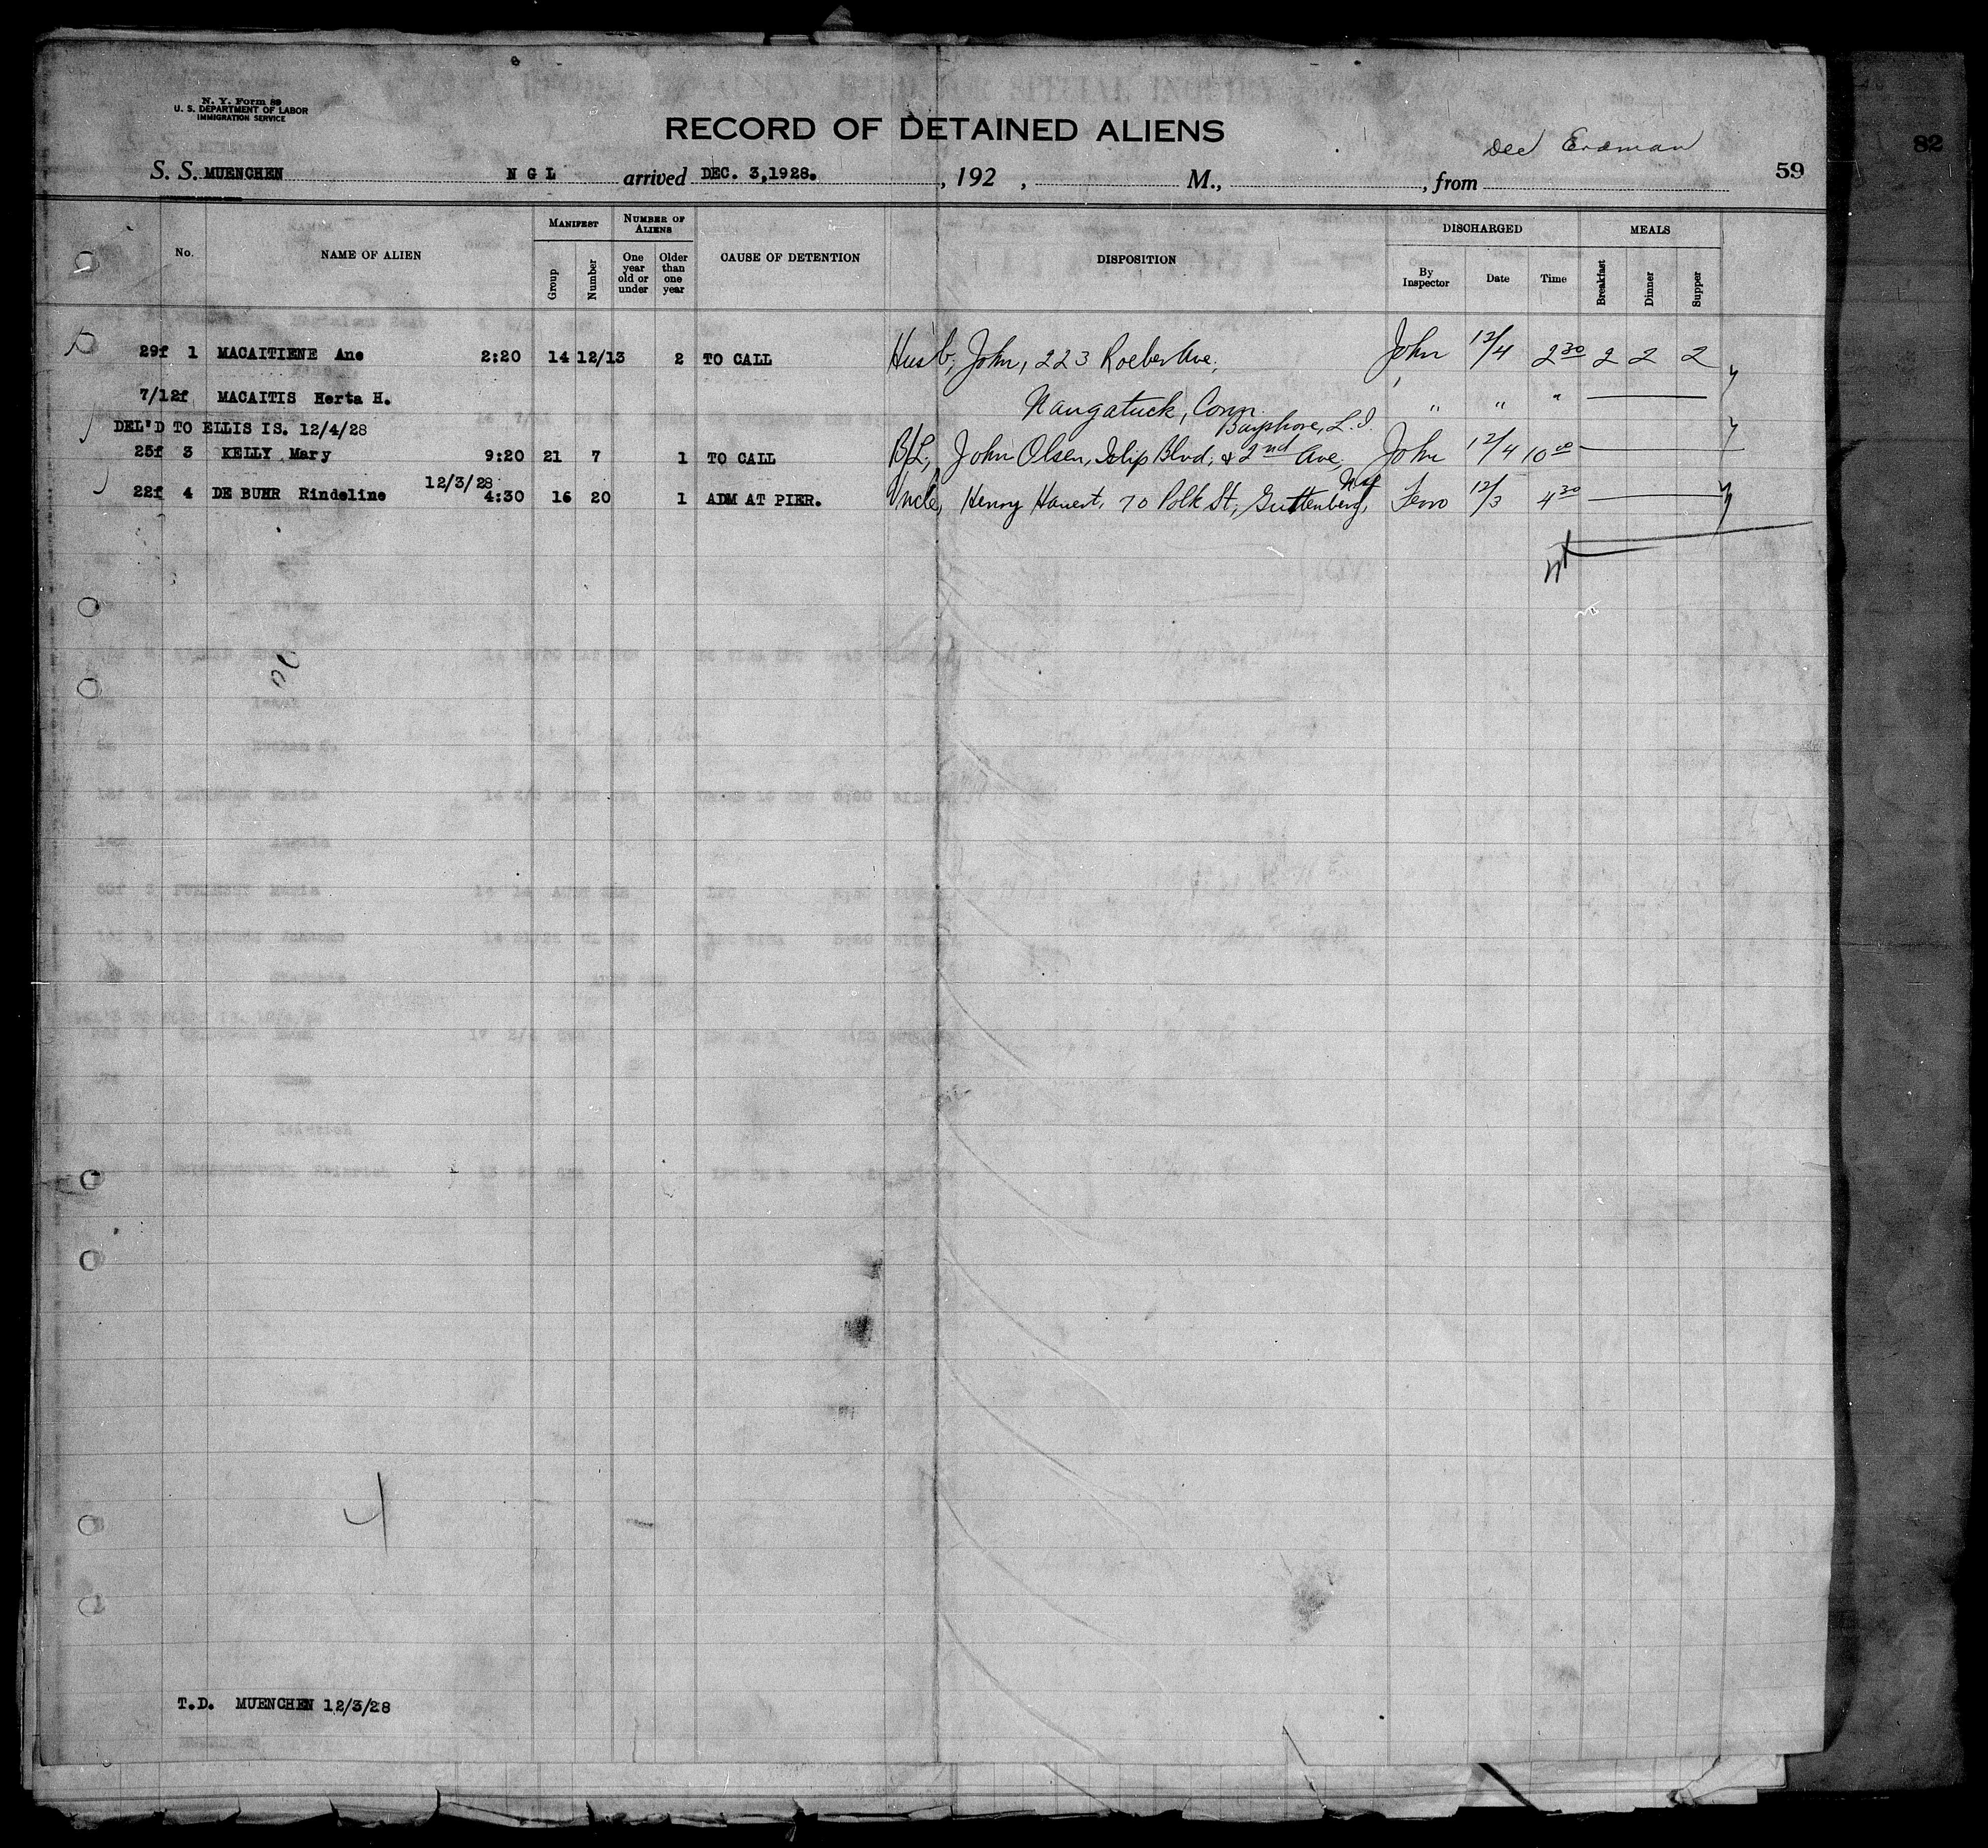 N. Y. Form 89
U. S. DEPARTMENT OF LABOR
IMMIGRATION SERVICE
RECORD OF DETAINED ALIENS
Erdman
82
S. S. MUENCHEN N G L arrived DEC. 3,1928. , 192 , M., , from 59
No. NAME OF ALIEN MANIFEST NUMBER OF ALIENS CAUSE OF DETENTION DISPOSITION DISCHARGED MEALS
Group Number One year old or under Older than one year By Inspector Date Time Breakfast Dinner Supper
29f 1 MACAITIENE Ane 2:20 14 12/13 2 TO CALL Husb, John, 223 Roeber Ave, John 12/4 2 30 2 2 2
7/12f MACAITIS Herta H. Naugatuck, Conn. " " "
DEL'D TO ELLIS IS. 12/4/28 Bayshore, L.I.
25f 3 KELLY Mary 9:20 21 7 1 TO CALL B/L, John Olsen, Islip Blvd, & 2nd Ave, John 12/4 10 00
12/3/28
22f 4 DE BUHR Rindeline 4:30 16 20 1 ADM AT PIER. Uncle, Henry Hauert, 70 Polk St, Guttenberg, 12/3 4 30
4
T.D. MUENCHEN 12/3/28